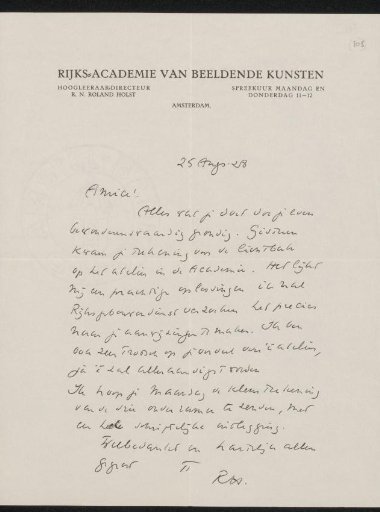 RIJKS-ACADEMIE VAN BEELDENDE KUNSTEN
HOOGLEERAAR-DIRECTEUR
R. N. ROLAND HOLST
SPREEKUUR MAANDAG EN
DONDERDAG 11-12
AMSTERDAM,
25 Augs - 28
Amice!
Alles wat je doet doe je even
bewonderenswaardig grondig. Gisteren
kwam je teekening voor de lichtbak
op het atelier in de Academie. Het lijkt
mij een prachtige oplossing en ik zal
Rijksgebouwendienst verzoeken het precies
naar je aanwijzingen te maken. Ik ben
ook zeer op je oordeel over 't atelier,
ja 't zal worden
Ik hoop je Maandag de kleine teekening
van de drie onderramen te zenden, met
een hele schriftelijke uitlegging.
Welbedankt en hartelijk allen
gegroet tt
RHs.